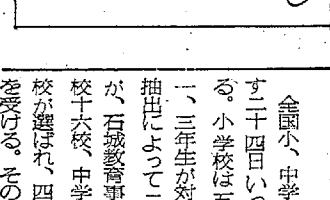 全国小、中学
す二十四日いっ
る。小学校は五
一、三年生が対
抽出によって二
が、石城教育事
校十六校、中学
校が選ばれ、四
を受ける。その